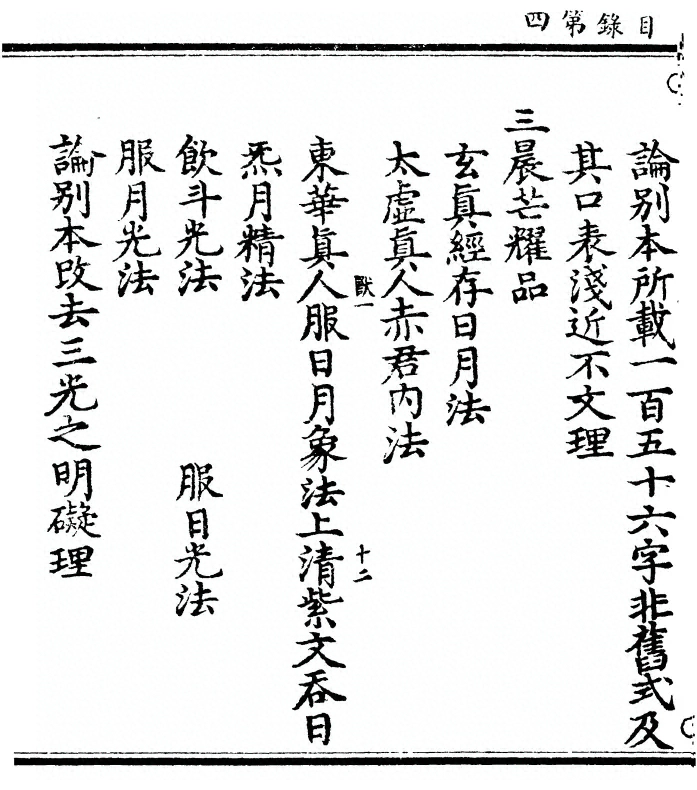 目錄第四
論別本所載一百五十六字非舊式及
其口表淺近不文理
三晨芒耀品
玄眞經存日月法
太虛眞人赤君内法
獸一
十二
東華眞人服日月象法上清紫文吞日
炁月精法
飲斗光法 服日光法
服月光法
論別本改去三光之明礙理